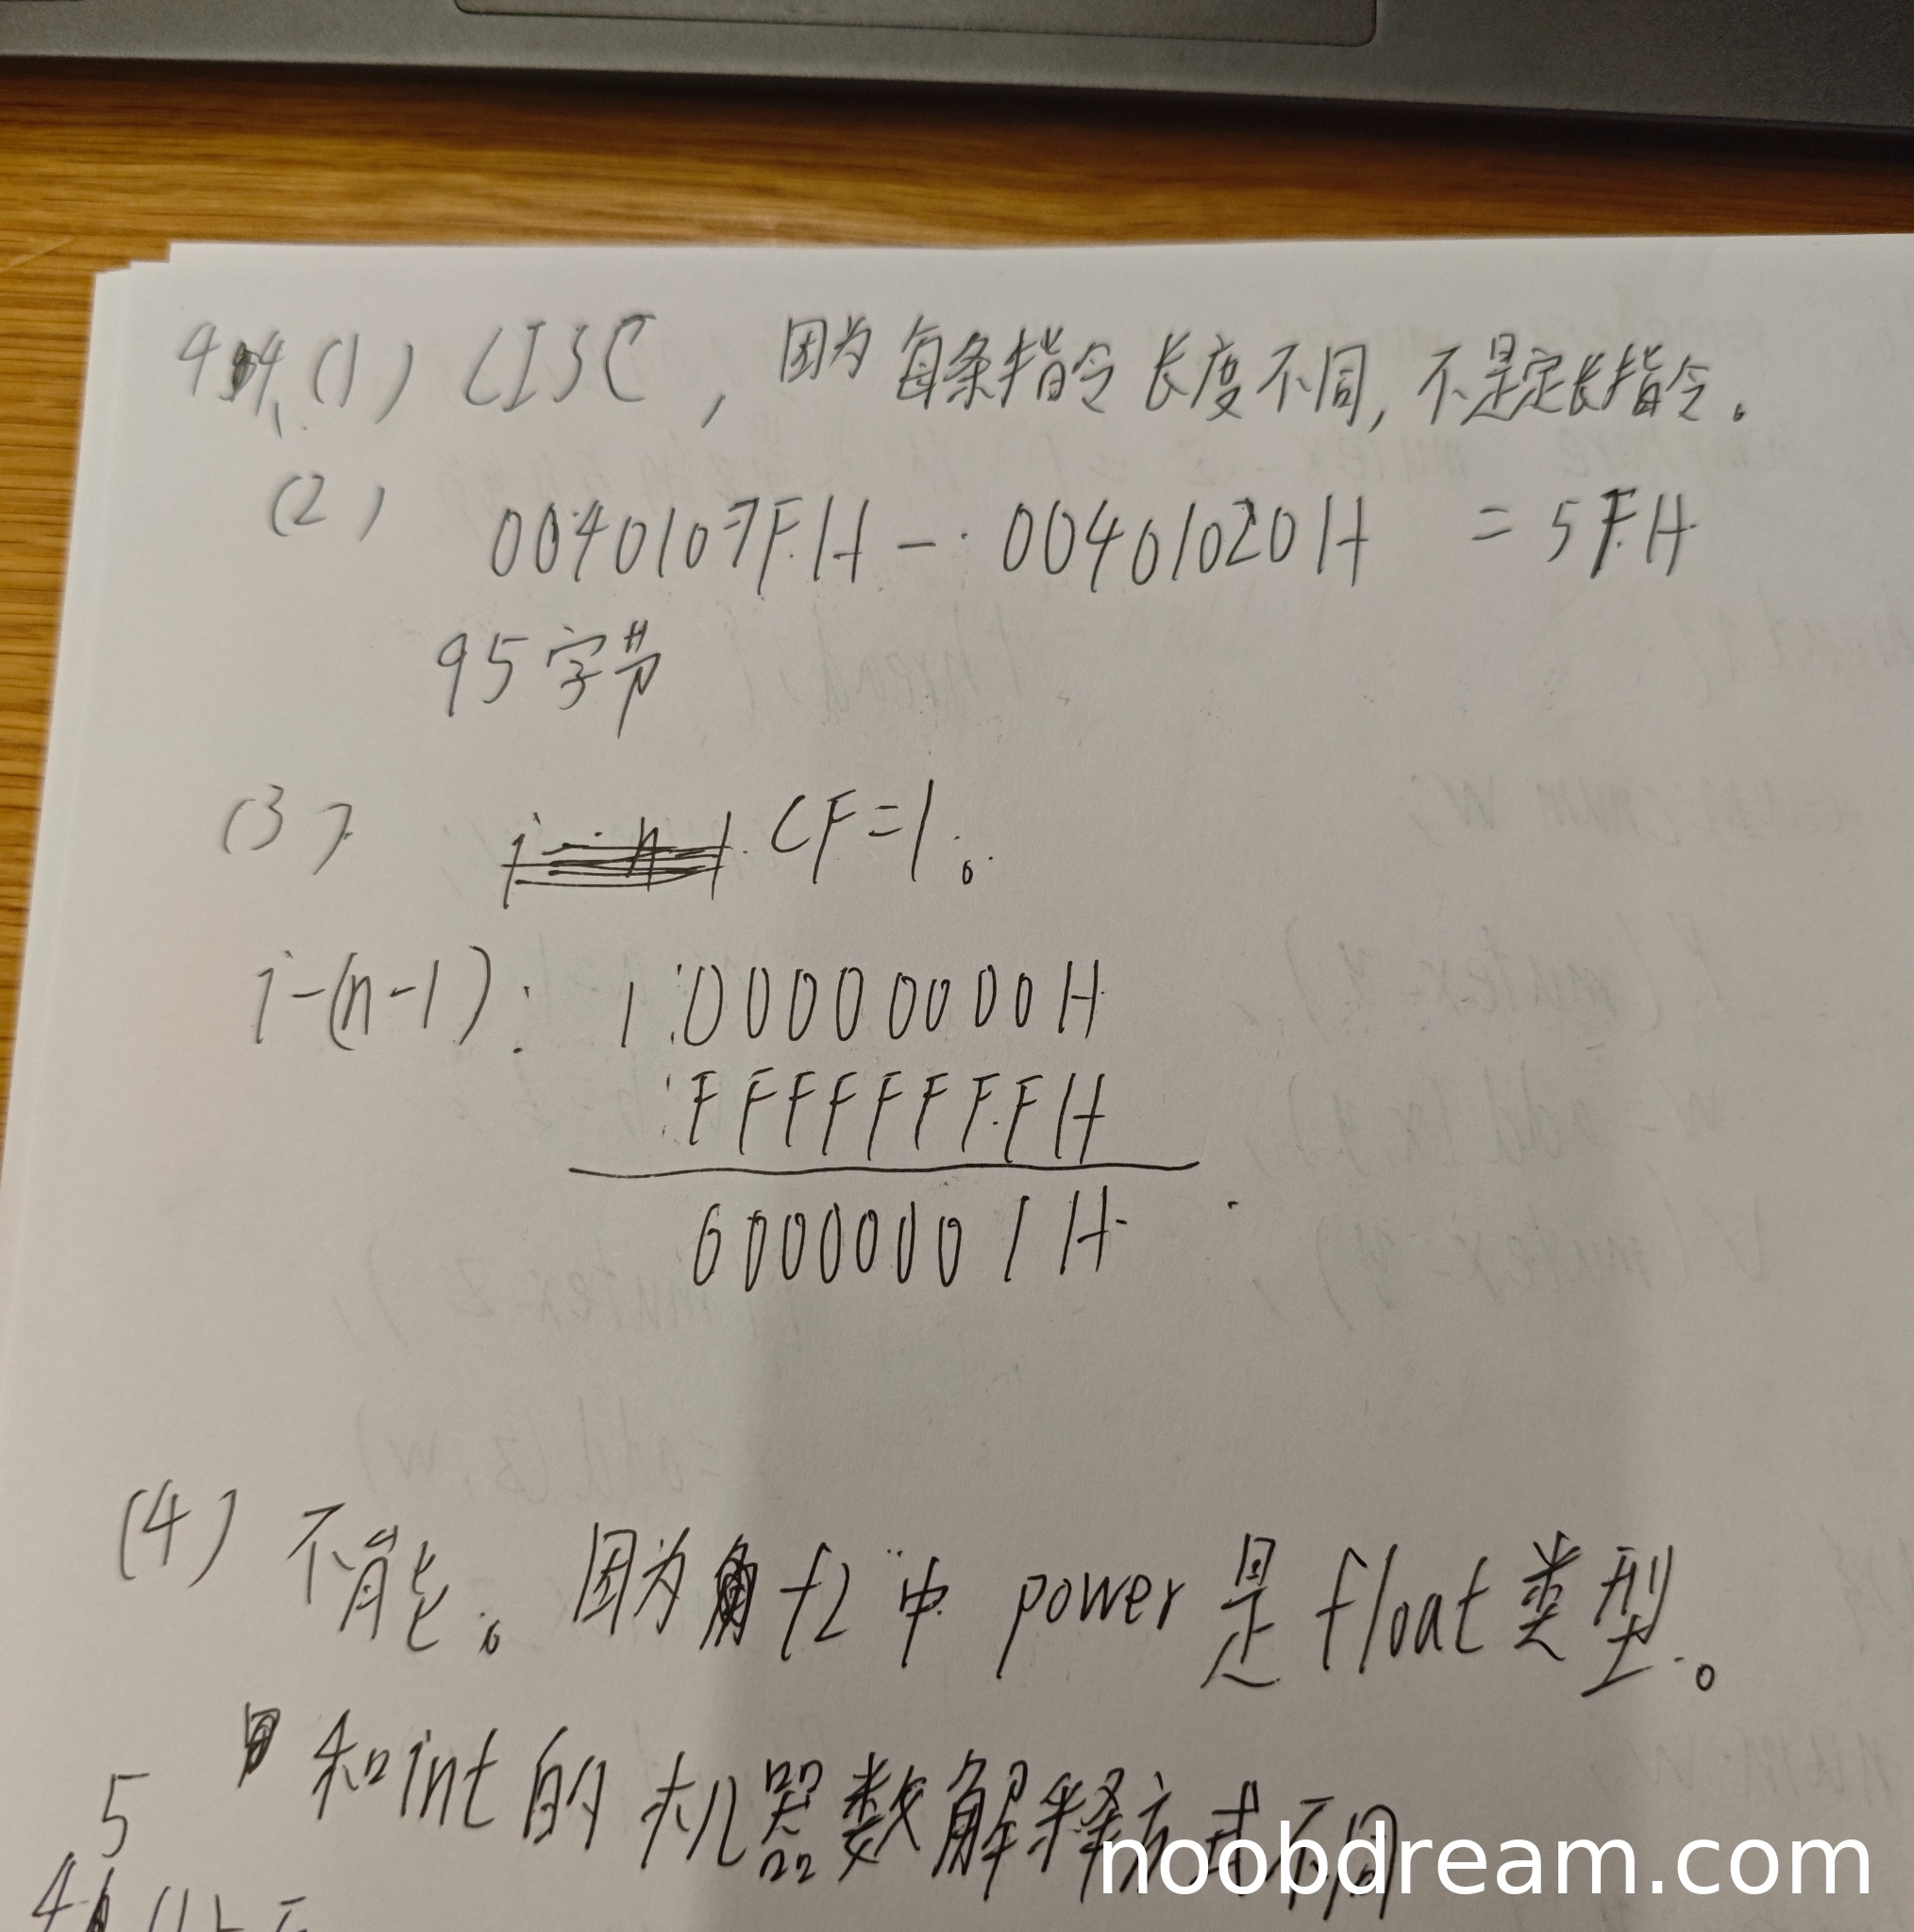 44、(1) CISC，因为每条指令长度不同，不是定长指令。
(2) 0040107FH - 00401020H = 5FH
95字节
(3) CF=1。
i-(n-1): 1 00000000H
FFFFFFFFH
00000001H
(4) 不能。因为f2中power是float类型。
和int的机器数解释方式不同
5
noobdream.com